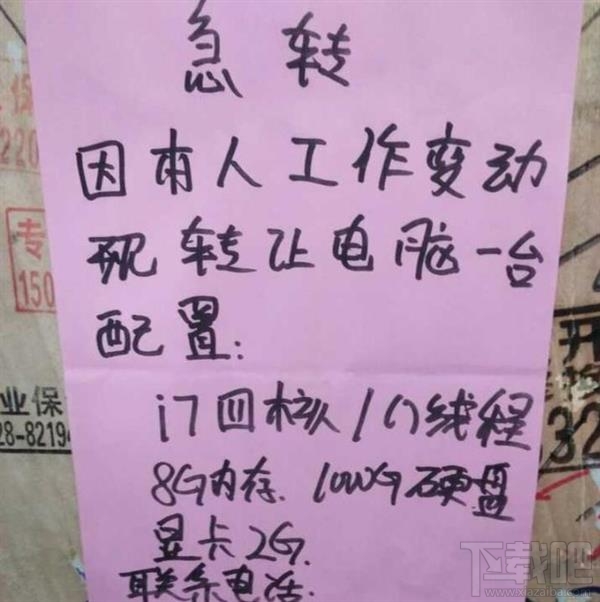 急转
因有人工作变动
现转让电脑一台
配置:
i7四核 1G线程
8G内存. 1000G硬盘
显卡2G.
联系电话:
保
220
专
150
业保
28-8219
开
32
下载吧
www.xiazaiba.com